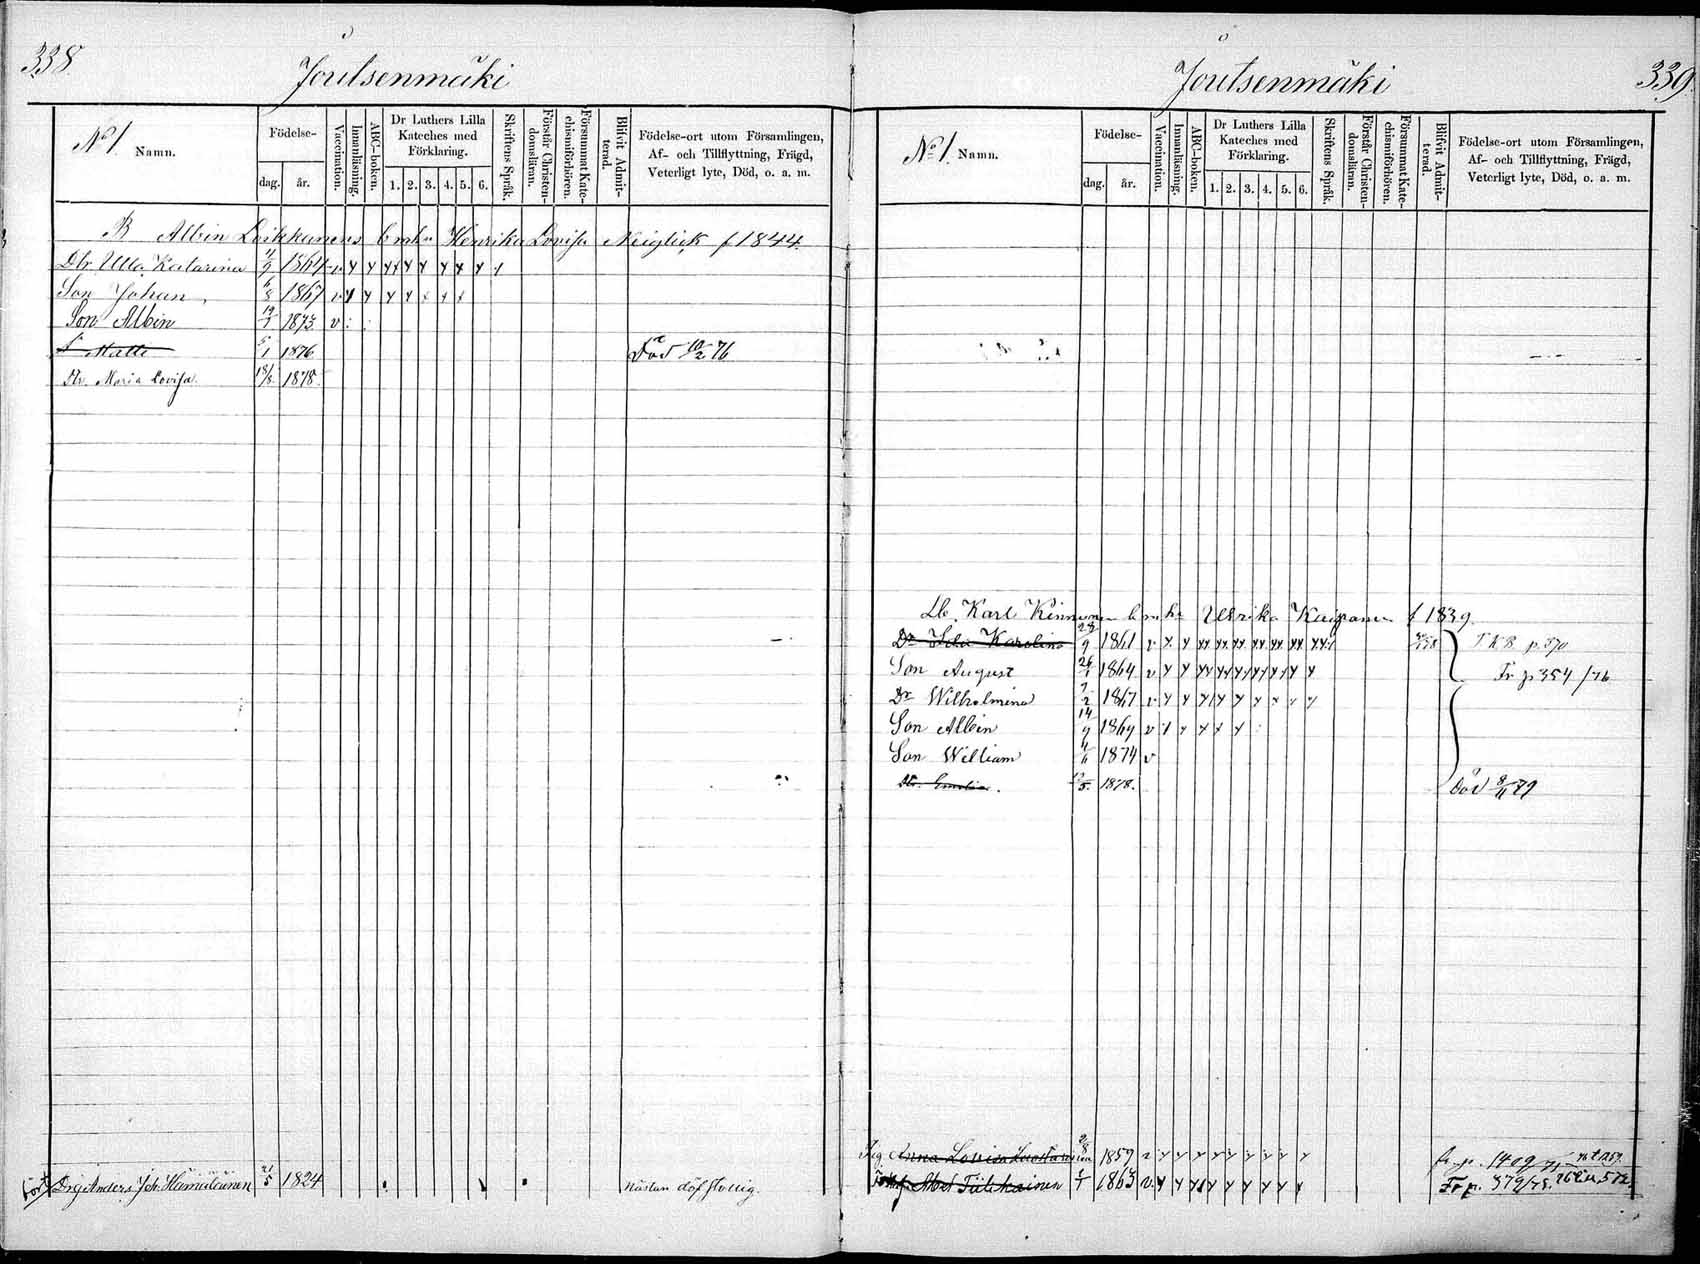 338
Joutsenmäki
No 1.
Namn.
Födelse-
dag.
år.
Vaccination.
Innanläsning.
ABC-boken.
Dr Luthers Lilla
Kateches med
Förklaring.
1. 2. 3. 4. 5. 6.
Skriftens Språk.
Förstår Christen-
domsläran.
Försummat Kate-
chismiförhören.
Blifvit Admit-
terad.
Födelse-ort utom Församlingen,
Af- och Tillflyttning, Frägd,
Veterligt lyte, Död, o. a. m.
B Albin Loikkanens Enka Henrika Lovisa Neiglick f 1844.
Dtr. Ulla Katarina 9 1864 v
Son Johan, 6/8 1867 v
Son Albin 19/1 1873 v
S Matts 5/1 1876 Död 10/2 76
Dtr. Maria Lovisa. 18/8 1878.
Drg Anders Joh. Hämäläinen 21/5 1824 nästan döfstum
Joutsenmäki
339
No 1.
Namn.
Födelse-
dag.
år.
Vaccination.
Innanläsning.
ABC-boken.
Dr Luthers Lilla
Kateches med
Förklaring.
1. 2. 3. 4. 5. 6.
Skriftens Språk.
Förstår Christen-
domsläran.
Försummat Kate-
chismiförhören.
Blifvit Admit-
terad.
Födelse-ort utom Församlingen,
Af- och Tillflyttning, Frägd,
Veterligt lyte, Död, o. a. m.
Karl Kinnunen Ulrika f 1839.
Dr Karolina 28/9 1861 v p. 370
Son August 26/1 1864 v Fr p 354/76
Dr Wilhelmina 7/2 1867 v
Son Albin 14/9 1869 v
Son William 4/11 1874 v
Dtr. Emilia. 1878. Död 8/11 79
Anna Lovisa 1859 v fr. p. 1409
Abel Tiilikainen 1/1 1863 v. Fr p. 379/75.